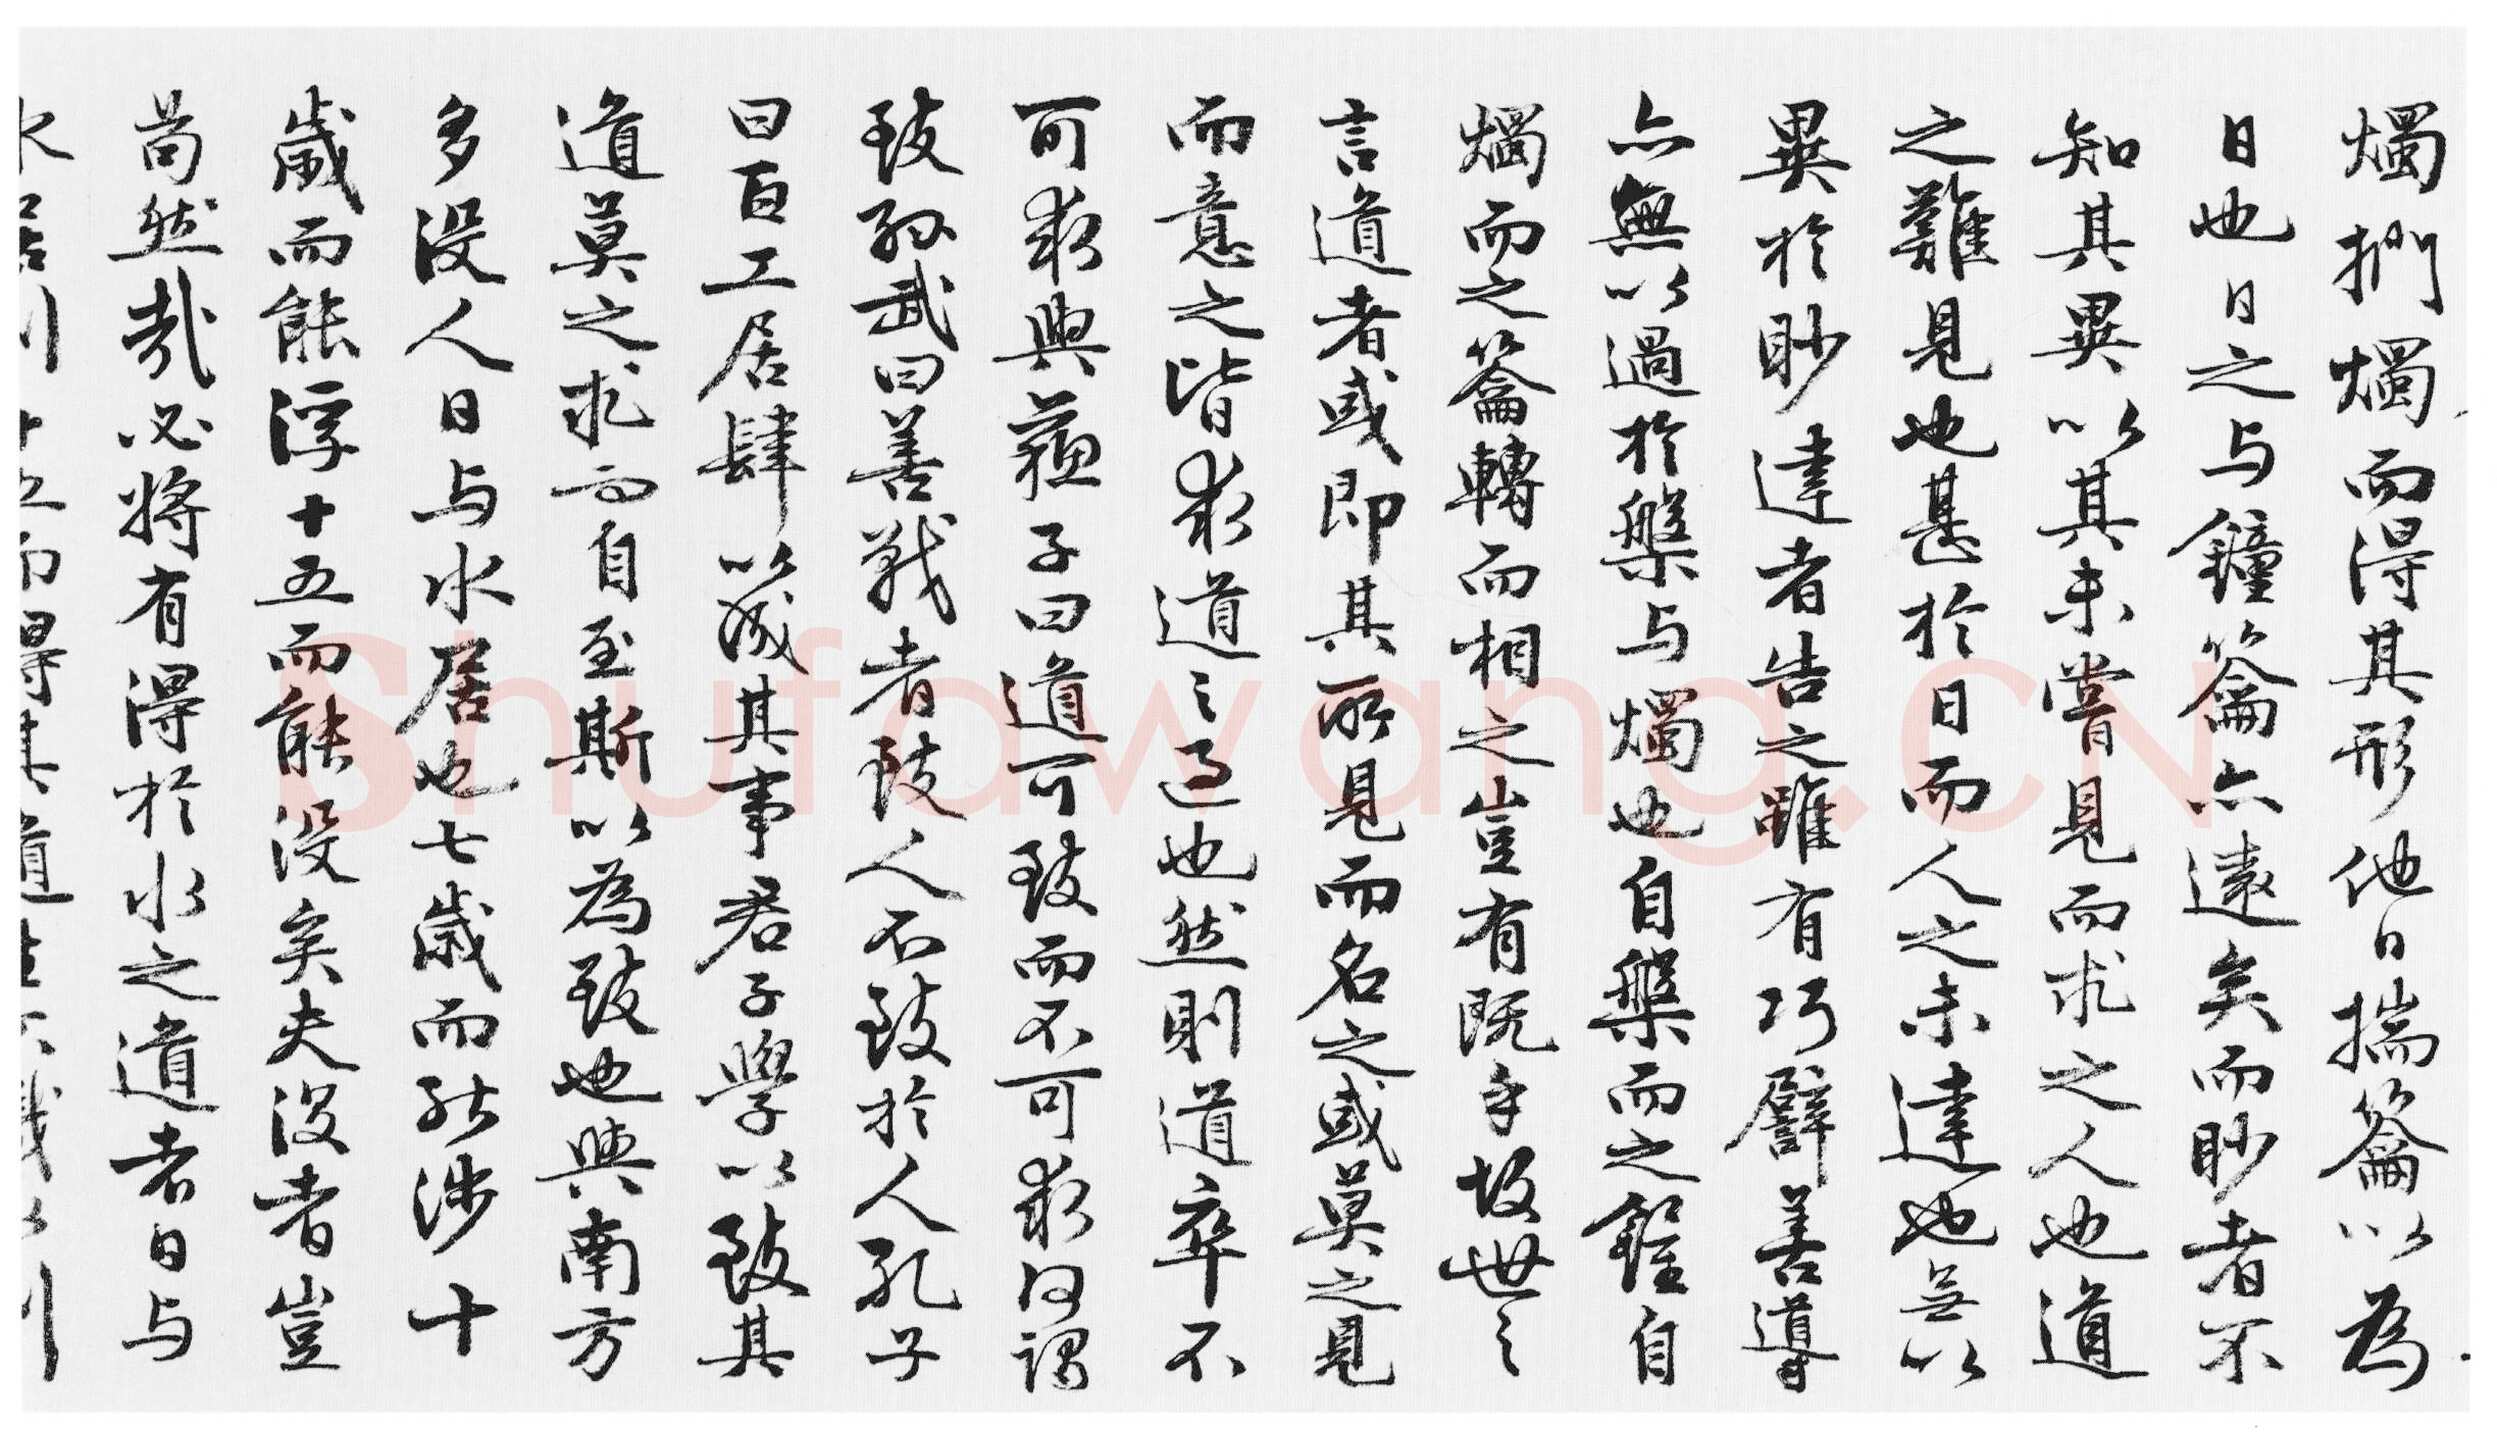 燭捫燭而得其形他日揣籥以為
日也日之与鐘籥亦遠矣而眇者不
知其異以其未嘗見而求之人也道
之難見也甚於日而人之未達也無以
異於眇達者告之雖有巧譬善導
亦無以過於槃与燭也自槃而之鐘自
燭而之籥轉而相之豈有既乎故世之
言道者或即其所見而名之或莫之見
而意之皆求道之過也然則道卒不
可求與蘇子曰道可致而不可求何謂
致孫武曰善戰者致人不致於人孔子
曰百工居肆以成其事君子學以致其
道莫之求而自至斯以為致也與南方
多没人日与水居也七歲而能涉十
歲而能浮十五而能没矣夫没者豈
苟然哉必將有得於水之道者日与
水居則十五而得其道生不識水則
Shufawang.CN